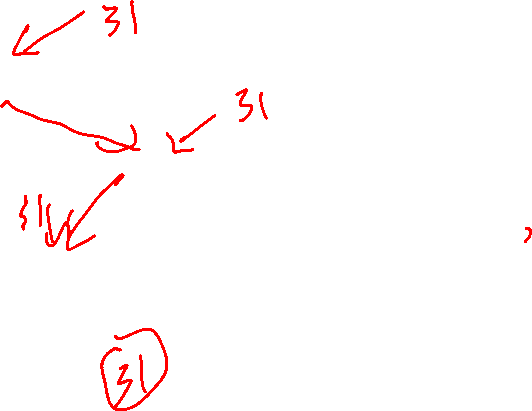 31
31
31
31